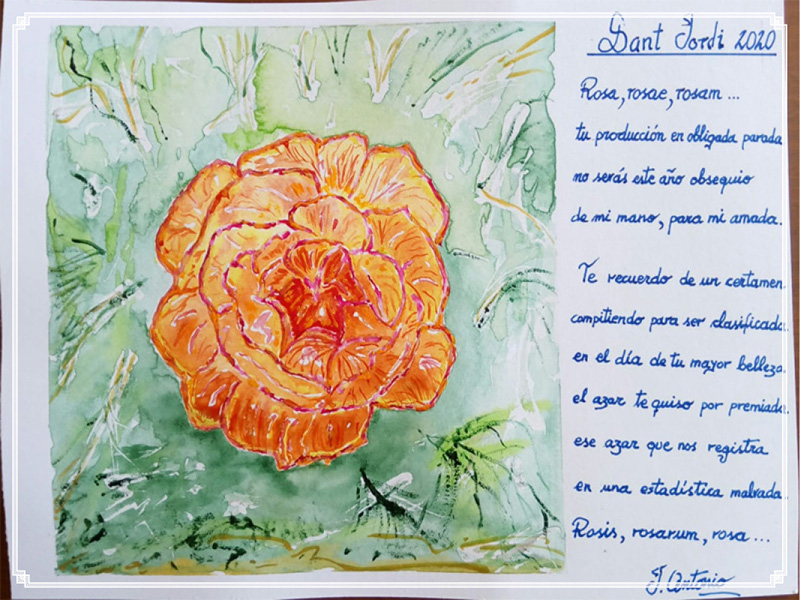 Sant Jordi 2020
Rosa, rosae, rosam ...
tu producción en obligada parada
no serás este año obsequio
de mi mano, para mi amada.
Te recuerdo de un certamen
compitiendo para ser clasificada
en el día de tu mayor belleza
el azar te quiso por premiada
ese azar que nos registra
en una estadística malvada
Rosis, rosarum, rosa ...
J. Antonio